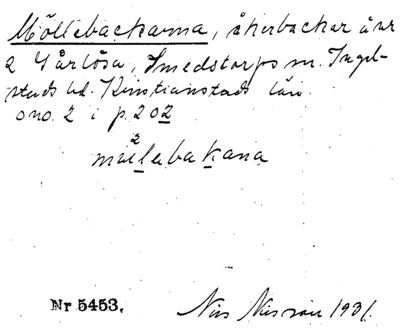 Möllebackarna, åkerbackar å nr
2 Gårlösa, Smedstorps sn. Ingel-
stads hd. Kristianstads län.
ono. 2 i p. 202
2
mölebakana
Nr 5453.
Nils Nilsson 1931.